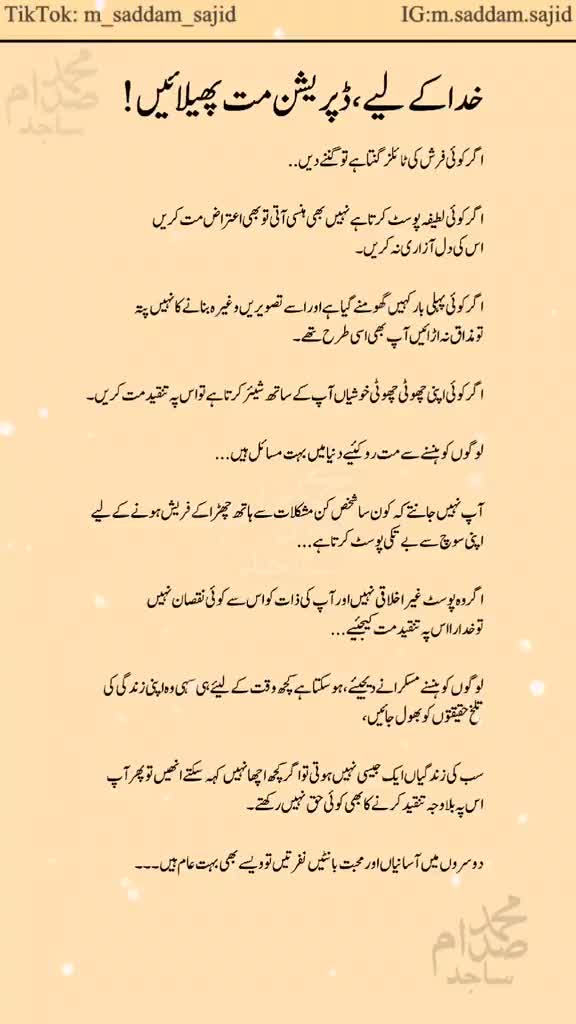 TikTok: m_saddam_sajid
IG:m.saddam.sajid
محمد
صدام
ساجد
خدا کے لیے، ڈپریشن مت پھیلائیں!
اگر کوئی فرش کی ٹائلز گنتا ہے تو گننے دیں..
اگر کوئی لطیفہ پوسٹ کرتا ہے نہیں بھی ہنسی آتی تو بھی اعتراض مت کریں
اس کی دل آزاری نہ کریں۔
اگر کوئی پہلی بار کہیں گھومنے گیا ہے اور اسے تصویریں وغیرہ بنانے کا نہیں پتہ
تو مذاق نہ اڑائیں آپ بھی اسی طرح تھے۔
اگر کوئی اپنی چھوٹی چھوٹی خوشیاں آپ کے ساتھ شیئر کرتا ہے تو اس پہ تنقید مت کریں۔
لوگوں کو ہنسنے سے مت روکئیے دنیا میں بہت مسائل ہیں...
آپ نہیں جانتے کہ کون سا شخص کن مشکلات سے ہاتھ چھڑا کے فریش ہونے کے لیے
اپنی سوچ سے بے تکی پوسٹ کرتا ہے...
اگر وہ پوسٹ غیر اخلاقی نہیں اور آپ کی ذات کو اس سے کوئی نقصان نہیں
تو خدارا اس پہ تنقید مت کیجئیے...
لوگوں کو ہنسنے مسکرانے دیجیئے، ہو سکتا ہے کچھ وقت کے لیئے ہی سہی وہ اپنی زندگی کی
تلخ حقیقتوں کو بھول جائیں،
سب کی زندگیاں ایک جیسی نہیں ہوتی تو اگر کچھ اچھا نہیں کہہ سکتے انھیں تو پھر آپ
اس پہ بلاوجہ تنقید کرنے کا بھی کوئی حق نہیں رکھتے۔
دوسروں میں آسانیاں اور محبت بانٹیں نفرتیں تو ویسے بھی بہت عام ہیں۔۔۔
محمد
صدام
ساجد